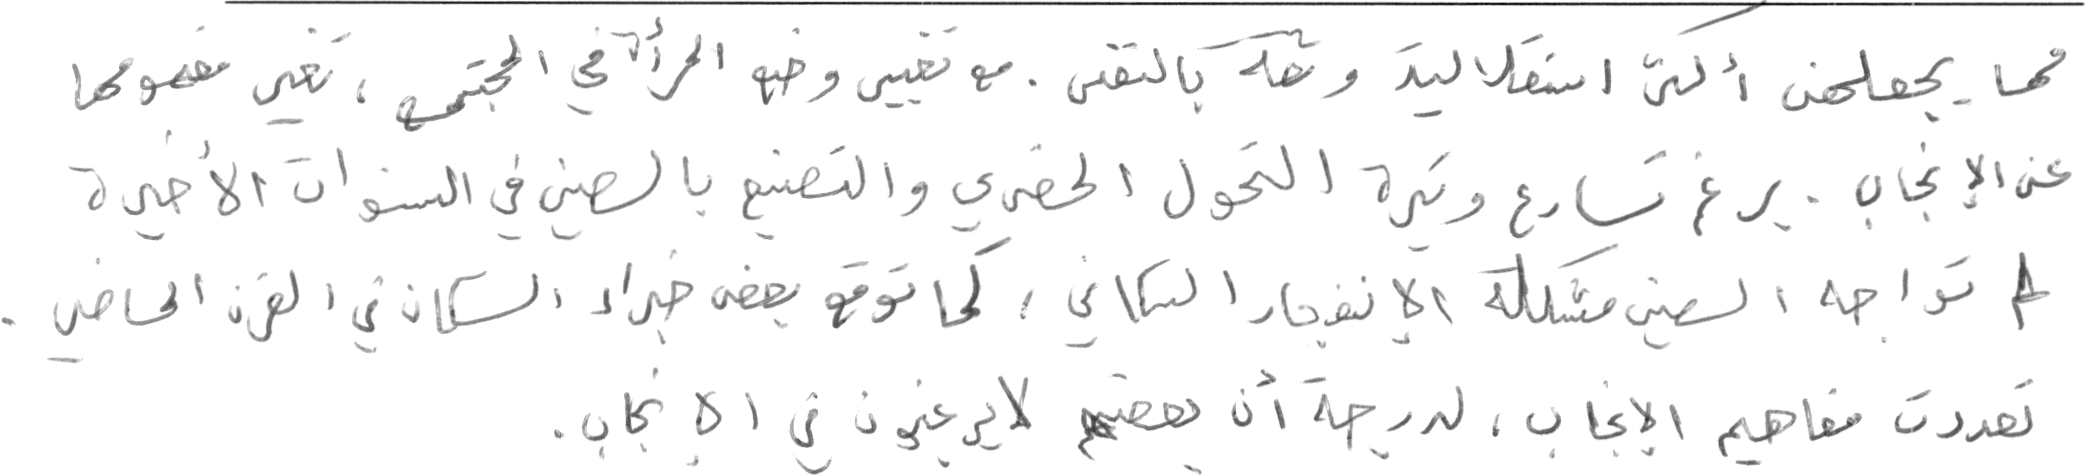 مما يجعلهن أكثر استقلالية وثقة بالنفس . مع تغيير وضع المرأة في المجتمع ، تغير مفهومها
عن الإنجاب . برغم تسارع وتيرة التحول الحضري والتصنيع بالصين في السنوات الأخيرة
لم تواجه الصين مشكلة الإنفجار السكاني ، كما توقع بعض خبراء السكان في القرن الماضي .
تعددت مفاهيم الإنجاب ، لدرجة أن بعضهم لا يرغبون في الإنجاب .